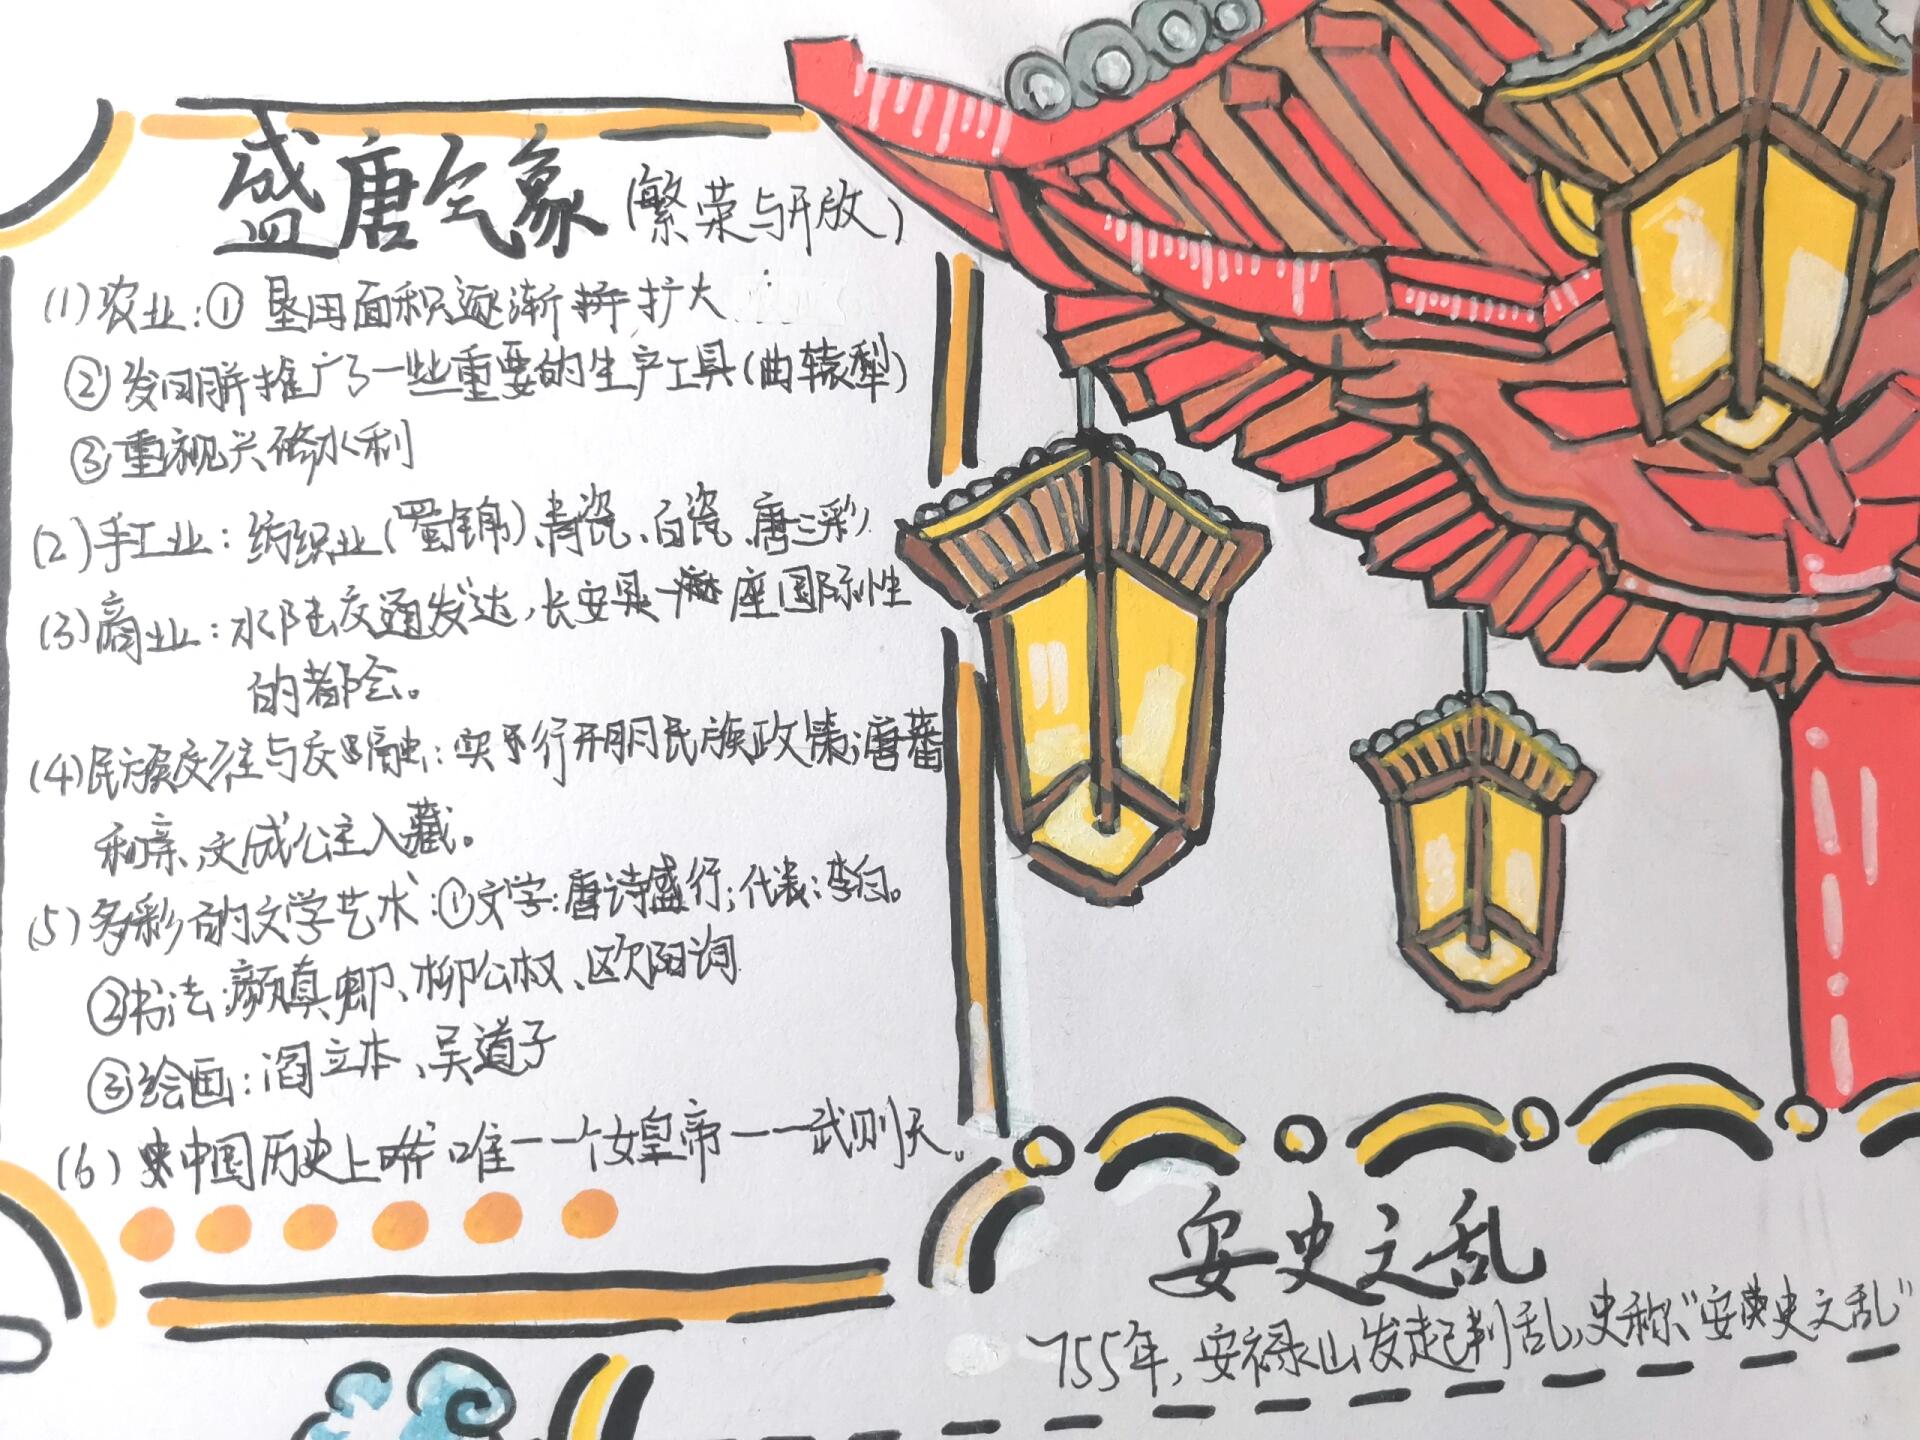 盛唐气象(繁荣与开放)
(1)农业:① 垦田面积逐渐扩大
②发明并推广了一些重要的生产工具(曲辕犁)
③重视兴修水利
(2)手工业:纺织业(蜀锦)、青瓷、白瓷、唐三彩
(3)商业:水陆交通发达,长安是一座国际性
的都会。
(4)民族交往与交融:实行开明民族政策;唐蕃
和亲、文成公主入藏。
(5)多彩的文学艺术:①文学:唐诗盛行;代表:李白。
②书法:颜真卿、柳公权、欧阳询
③绘画:阎立本、吴道子
(6)中国历史上唯一一个女皇帝——武则天。
安史之乱
755年,安禄山发起判乱,史称“安史之乱”